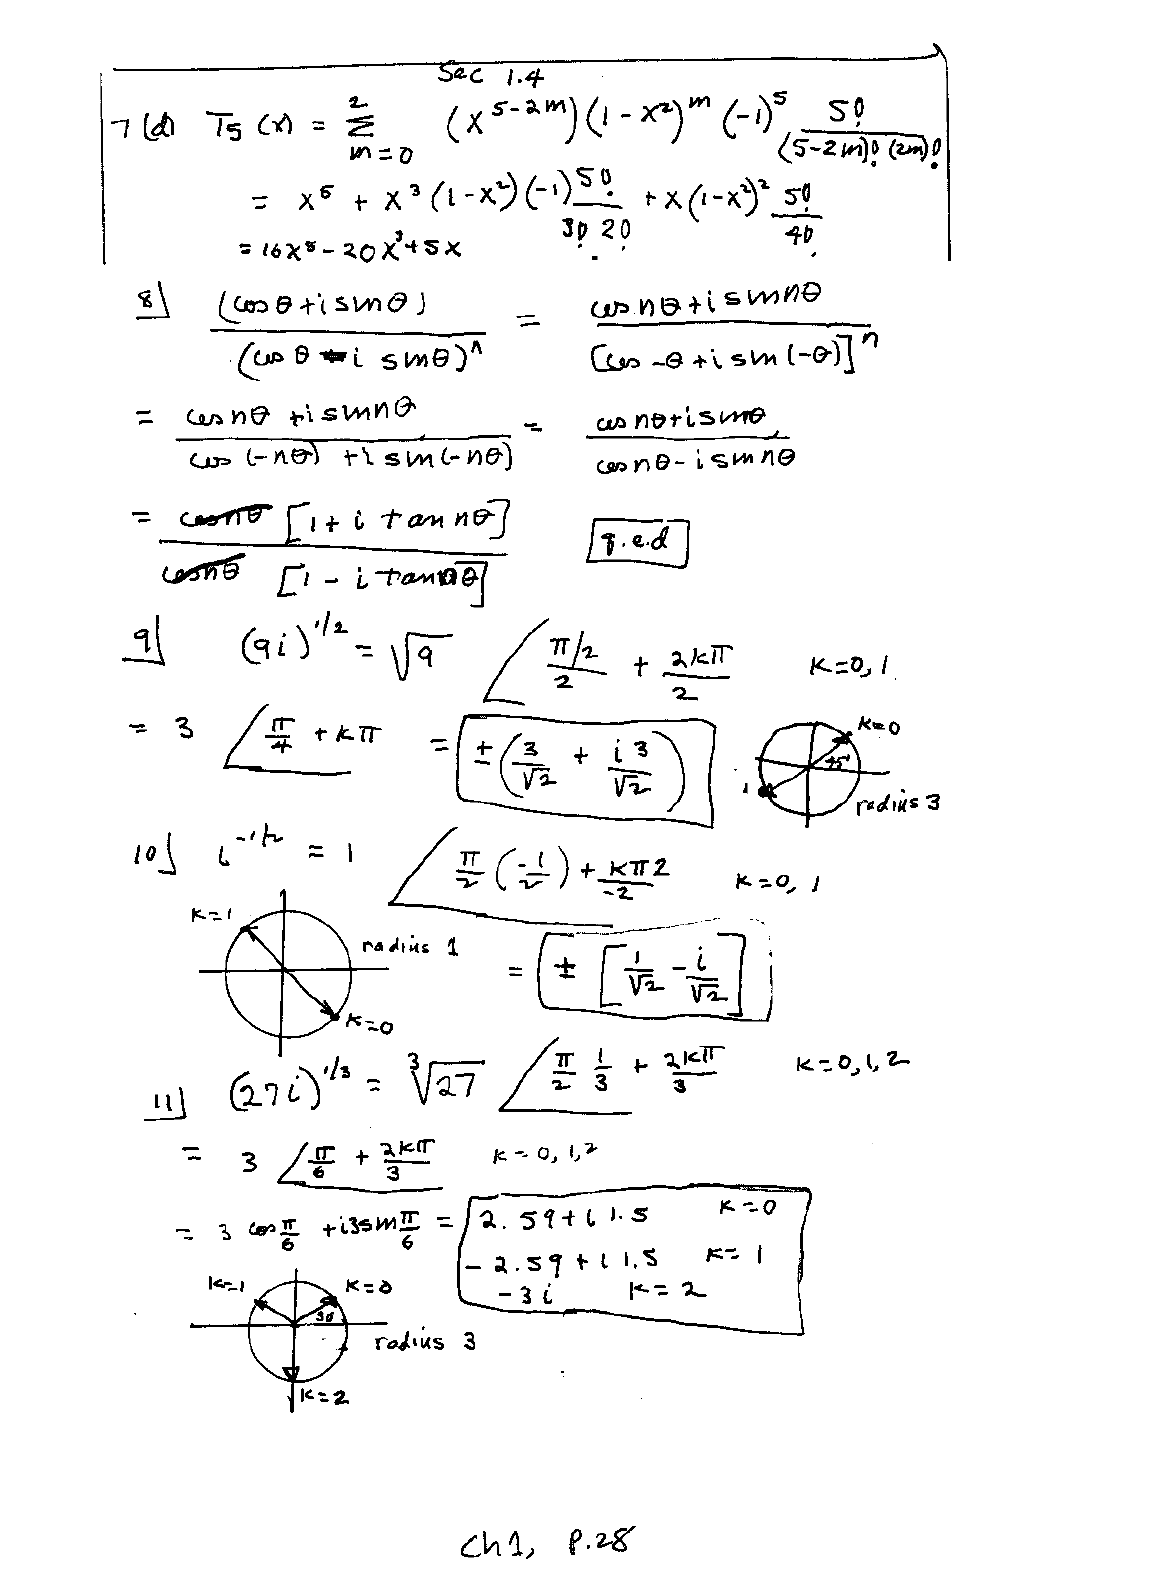 Sec 1.4
7(d) T5(x) = Σ_{m=0}^{2} (x^{5-2m})(1-x²)^m (-1)^5 5!/((5-2m)! (2m)!)
= x^5 + x^3 (1-x²)(-1) 5!/(3! 2!) + x(1-x²)² 5!/4!
= 16x^5 - 20x^3 + 5x
8] (cos θ + i sin θ)/(cos θ - i sin θ)^n = (cos nθ + i sin nθ)/[cos -θ + i sin(-θ)]^n
= (cos nθ + i sin nθ)/(cos(-nθ) + i sin(-nθ)) = (cos nθ + i sin nθ)/(cos nθ - i sin nθ)
= cos nθ [1 + i tan nθ] / cos nθ [1 - i tan nθ] q.e.d
9] (9i)^{1/2} = √9 ∠ (π/2)/2 + 2kπ/2 K=0, 1
= 3 ∠ π/4 + kπ = ± (3/√2 + i3/√2) K=0 45° 1 radius 3
10] i^{-1/2} = 1 ∠ π/2 (-1/2) + kπ2/-2 K=0, 1
K=1 radius 1 K=0 = ± [1/√2 - i/√2]
11] (27i)^{1/3} = ∛27 ∠ π/2 1/3 + 2kπ/3 K=0,1,2
= 3 ∠ π/6 + 2kπ/3 K=0,1,2
= 3 cos π/6 + i3 sin π/6 = 2.59 + i 1.5 K=0
-2.59 + i 1.5 K=1
-3i K=2
K=1 K=0 30 radius 3
K=2
Ch1, P.28